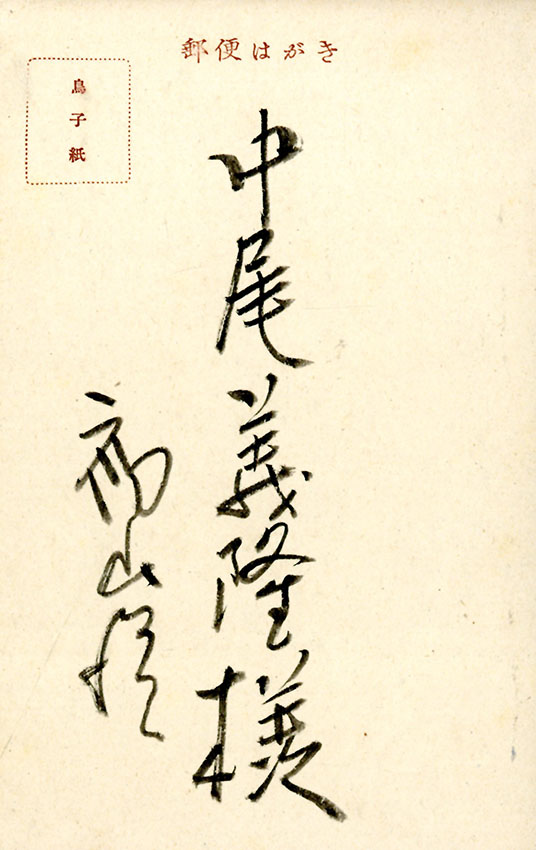 郵便はがき
鳥子紙
中尾義隆様
高山